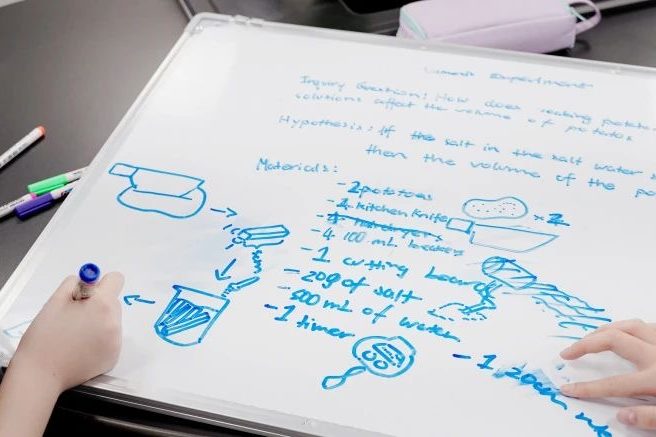 Experiment
Inquiry Question: How does soaking potato
solutions affect the volume of potatos
Hypothesis: If the salt in the salt water
then the volume of the po
Materials:
- 2 potatoes
- 1 kitchen knife
x 2
- 4 100 mL beakers
- 1 cutting board
- 20g of salt
- 500 mL of water
- 1 timer
- 1